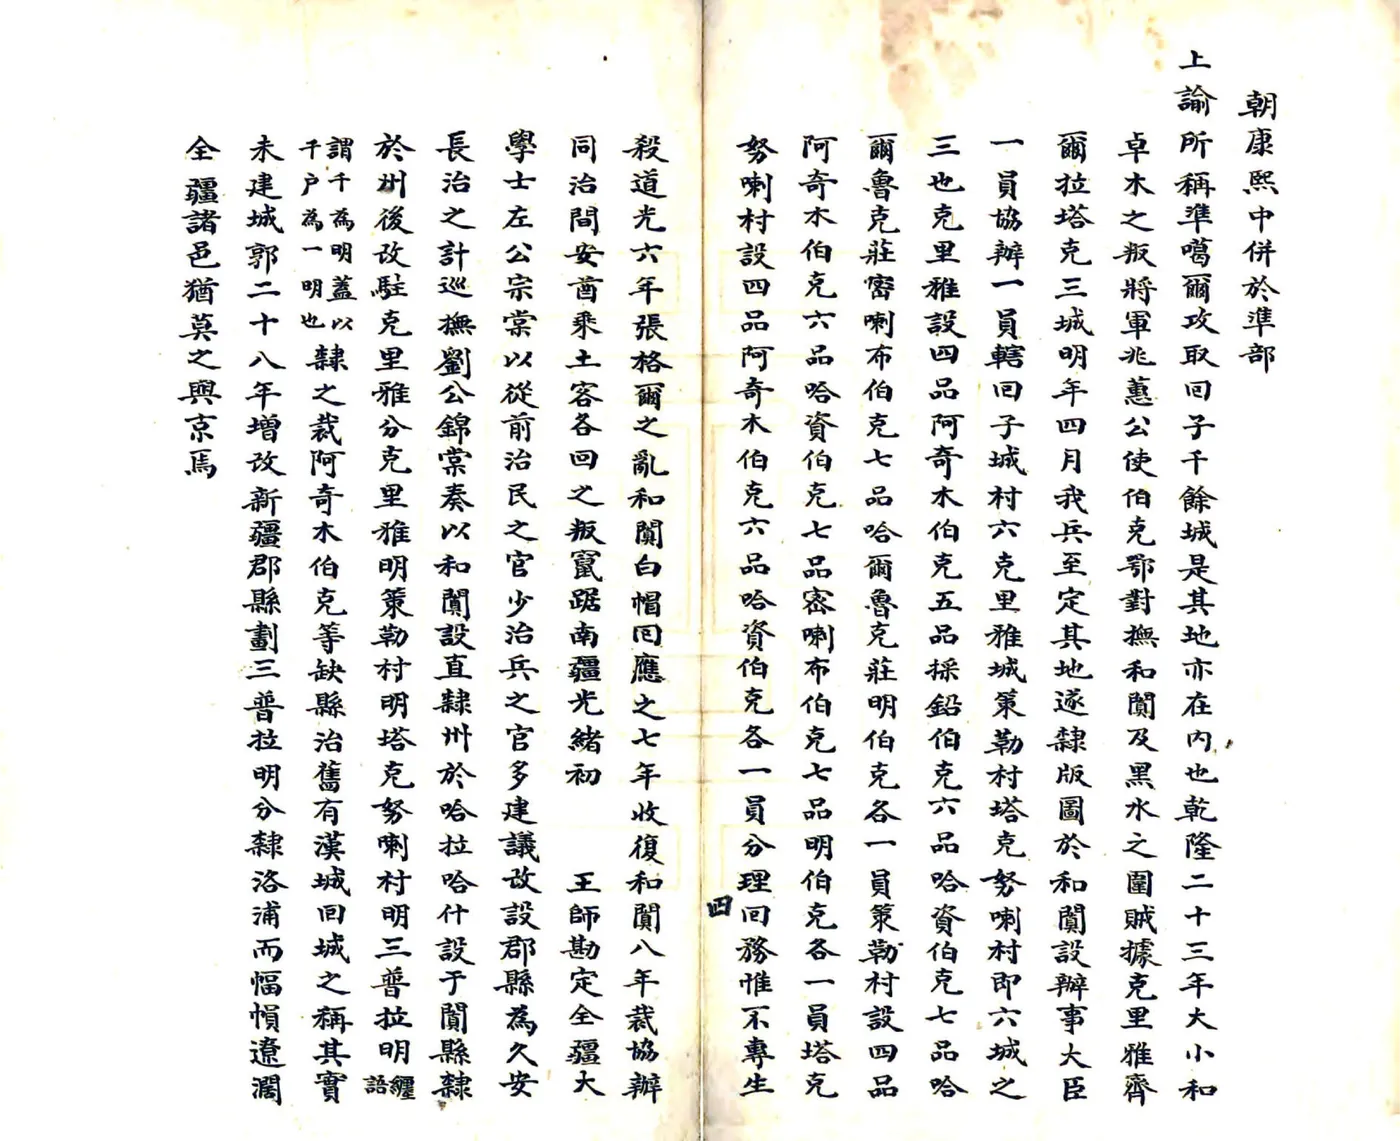 朝康熙中併於準部
上諭所稱準噶爾攻取回子千餘城是其地亦在內也乾隆二十三年大小和
卓木之叛將軍兆蕙公使伯克鄂對撫和闐及黑水之圍賊據克里雅齊
爾拉塔克三城明年四月我兵至定其地遂隸版圖於和闐設辦事大臣
一員協辦一員轄回子城村六克里雅城策勒村塔克努喇村即六城之
三也克里雅設四品阿奇木伯克五品採鉛伯克六品哈資伯克七品哈
爾魯克莊密喇布伯克七品哈爾魯克莊明伯克各一員策勒村設四品
阿奇木伯克六品哈資伯克七品密喇布伯克七品明伯克各一員塔克
努喇村設四品阿奇木伯克六品哈資伯克各一員分理回務惟不專生
四
殺道光六年張格爾之亂和闐白帽回應之七年收復和闐八年裁協辦
同治間安酋乘土客各回之叛竄踞南疆光緒初 王師勘定全疆大
學士左公宗棠以從前治民之官少治兵之官多建議改設郡縣為久安
長治之計巡撫劉公錦棠奏以和闐設直隸州於哈拉哈什設于闐縣隸
於州後改駐克里雅分克里雅明策勒村明塔克努喇村明三普拉明纏語
謂千為明蓋以千戶為一明也隸之裁阿奇木伯克等缺縣治舊有漢城回城之稱其實
未建城郭二十八年增改新疆郡縣劃三普拉明分隸洛浦而幅幀遼濶
全疆諸邑猶莫之與京焉